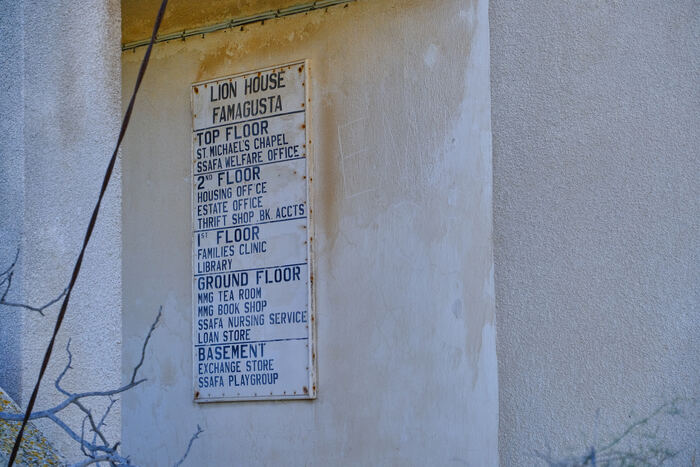 LION HOUSE
FAMAGUSTA
TOP FLOOR
ST MICHAEL'S CHAPEL
SSAFA WELFARE OFFICE
2ND FLOOR
HOUSING OFF CE
ESTATE OFFICE
THRIFT SHOP BK. ACCTS
1ST FLOOR
FAMILIES CLINIC
LIBRARY
GROUND FLOOR
MMG TEA ROOM
MMG BOOK SHOP
SSAFA NURSING SERVICE
LOAN STORE
BASEMENT
EXCHANGE STORE
SSAFA PLAYGROUP